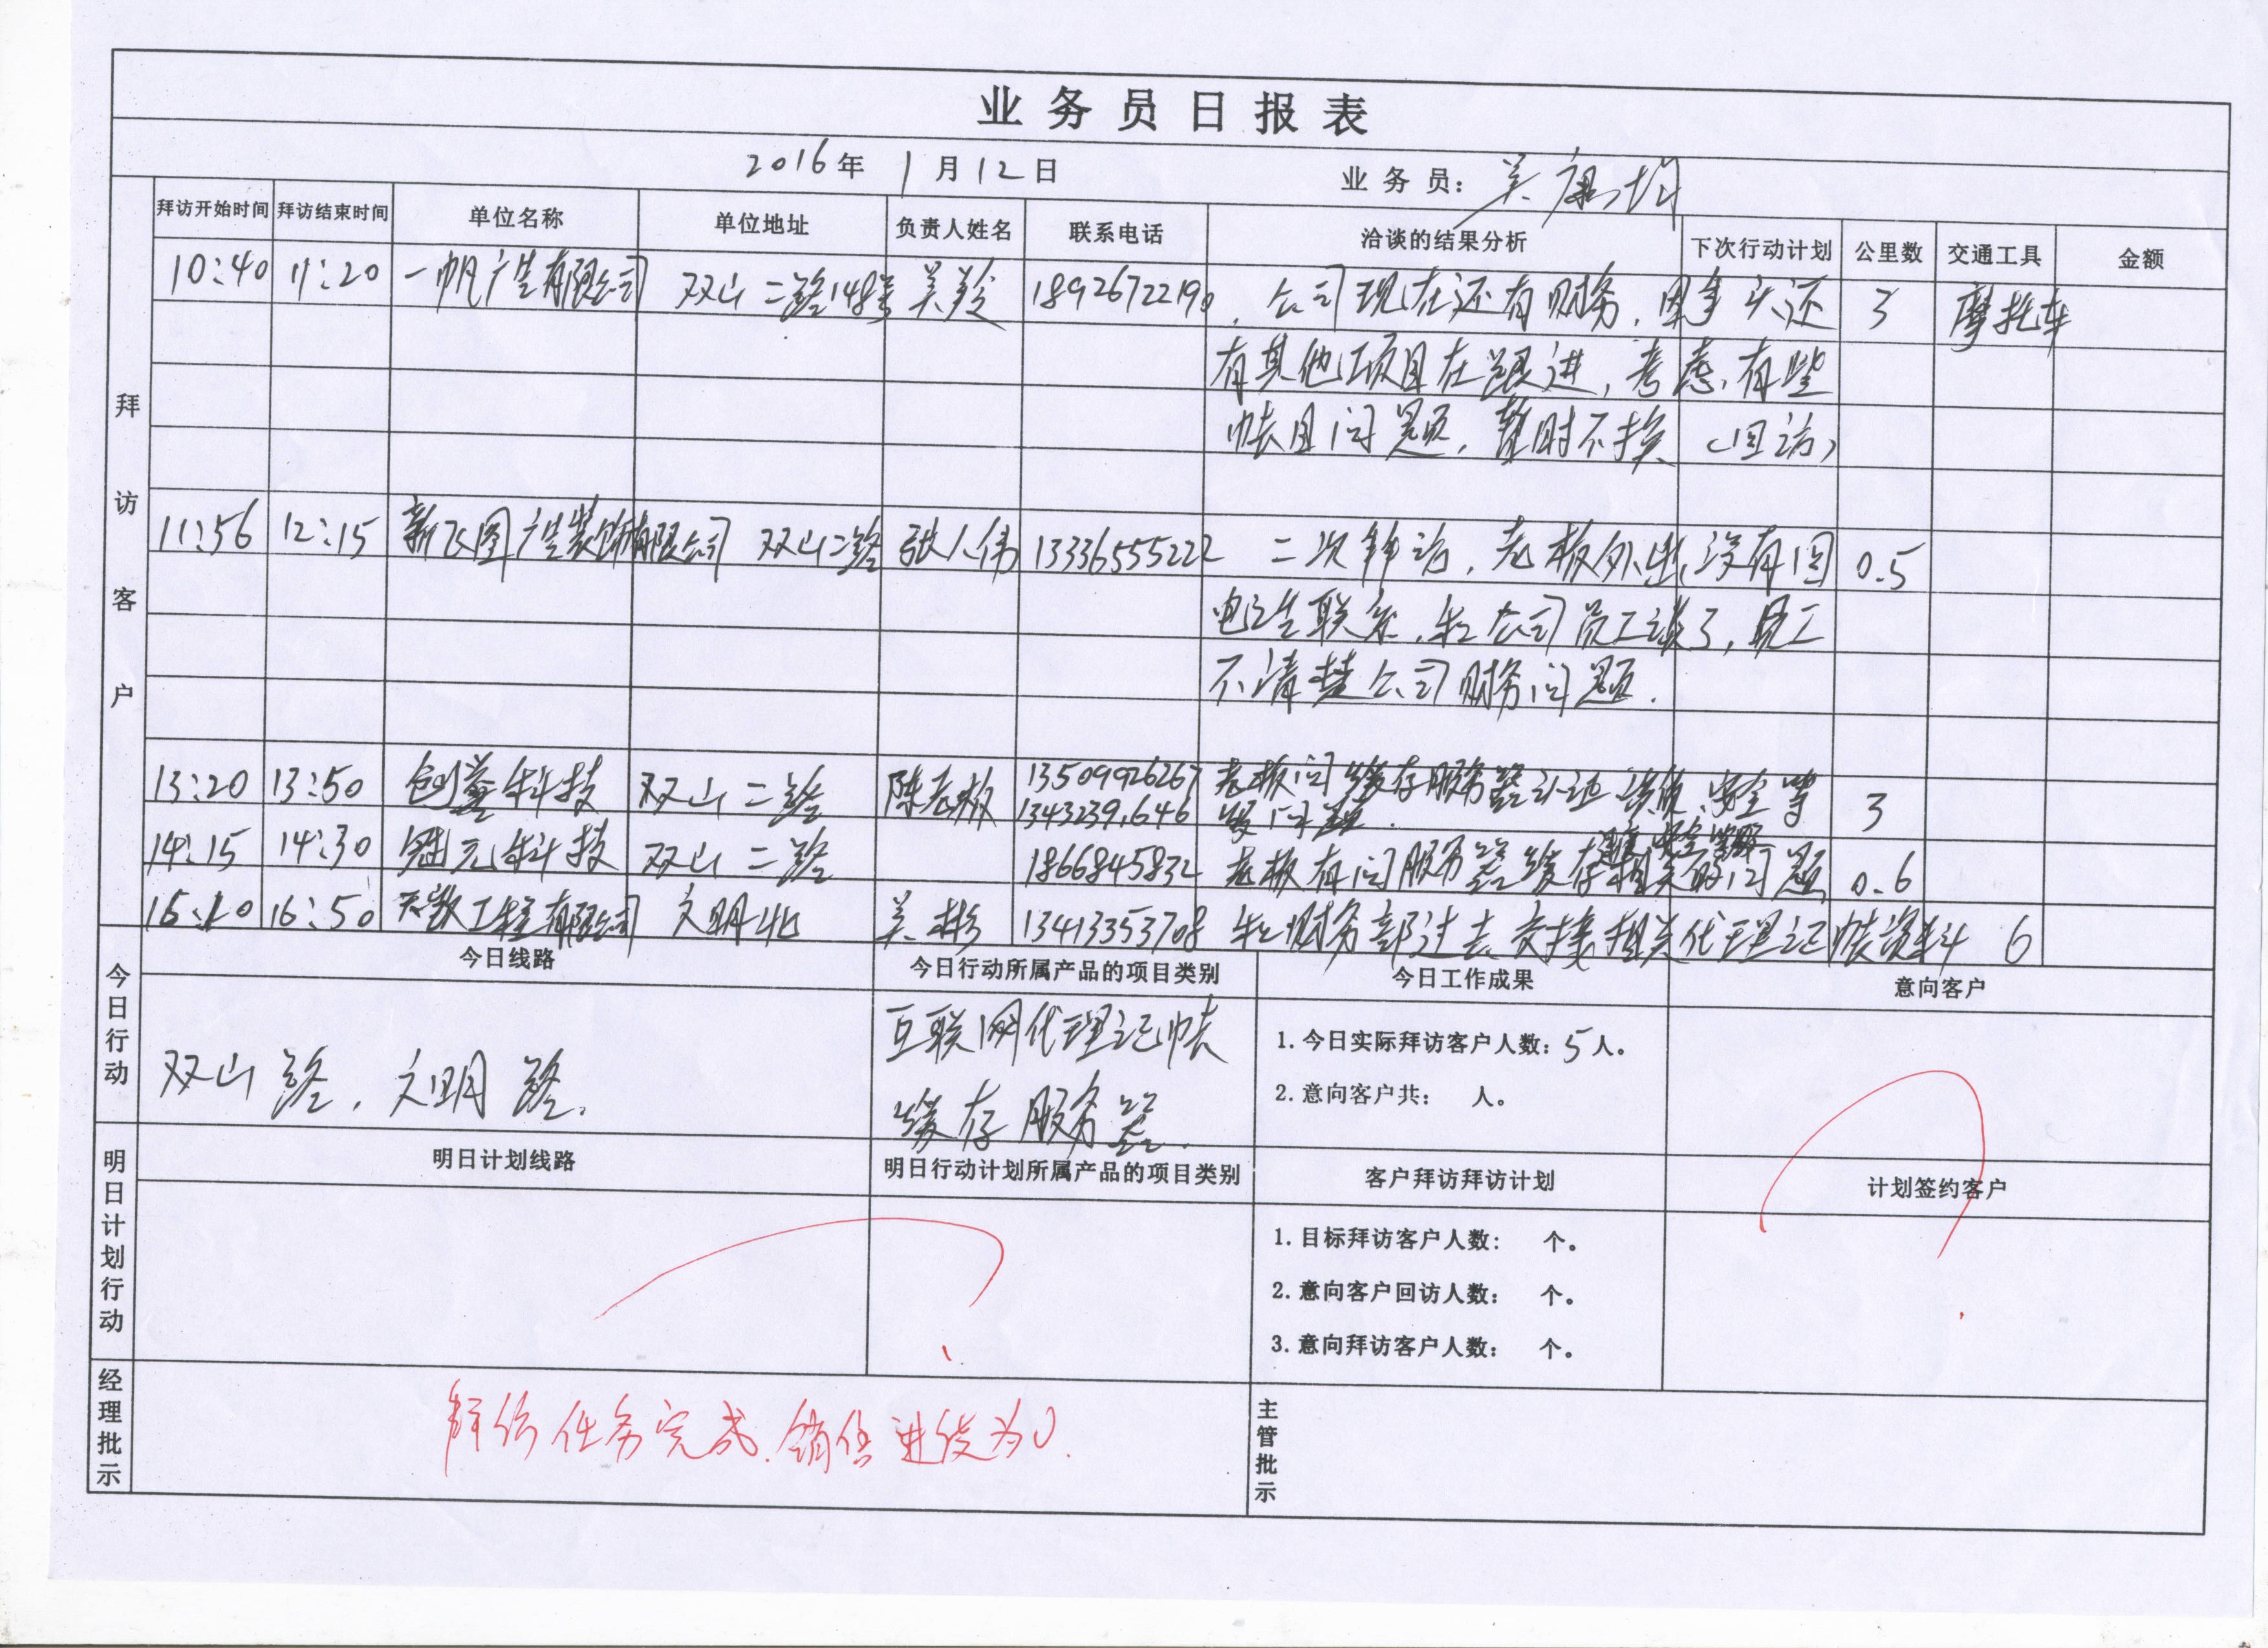 业务员日报表
2016年 1月12日 业务员：吴
拜访客户
拜访开始时间 拜访结束时间 单位名称 单位地址 负责人姓名 联系电话 洽谈的结果分析 下次行动计划 公里数 交通工具 金额
10:40 11:20 一帆广告有限公司 双山二路148号 吴 18926722190 公司现在还有财务，因手头还 3 摩托车
有其他项目在跟进，考虑有些
帐目问题，暂时不换（回访）
11:56 12:15 新飞图广告装饰有限公司 双山二路 张人伟 13336555222 二次拜访，老板外出，没有回 0.5
电话联系，和公司员工谈了，员工
不清楚公司财务问题．
13:20 13:50 创益科技 双山二路 陈老板 13509926267 老板问缓存服务器 安全等 3
问题．
14:15 14:30 冠元科技 双山二路 1866845832 老板有问服务器缓存相关的问题 0.6
16:50 工程有限公司 文明北 吴彬 13413353708 和财务部过去交接相关代理记帐资料 6
今日行动
今日线路 今日行动所属产品的项目类别 今日工作成果 意向客户
双山路．文明路． 互联网代理记帐
缓存服务器．
1.今日实际拜访客户人数：5人。
2.意向客户共： 人。
明日计划行动
明日计划线路 明日行动计划所属产品的项目类别 客户拜访拜访计划 计划签约客户
1.目标拜访客户人数： 个。
2.意向客户回访人数： 个。
3.意向拜访客户人数： 个。
经理批示 拜访任务完成．销售业绩为0． 主管批示